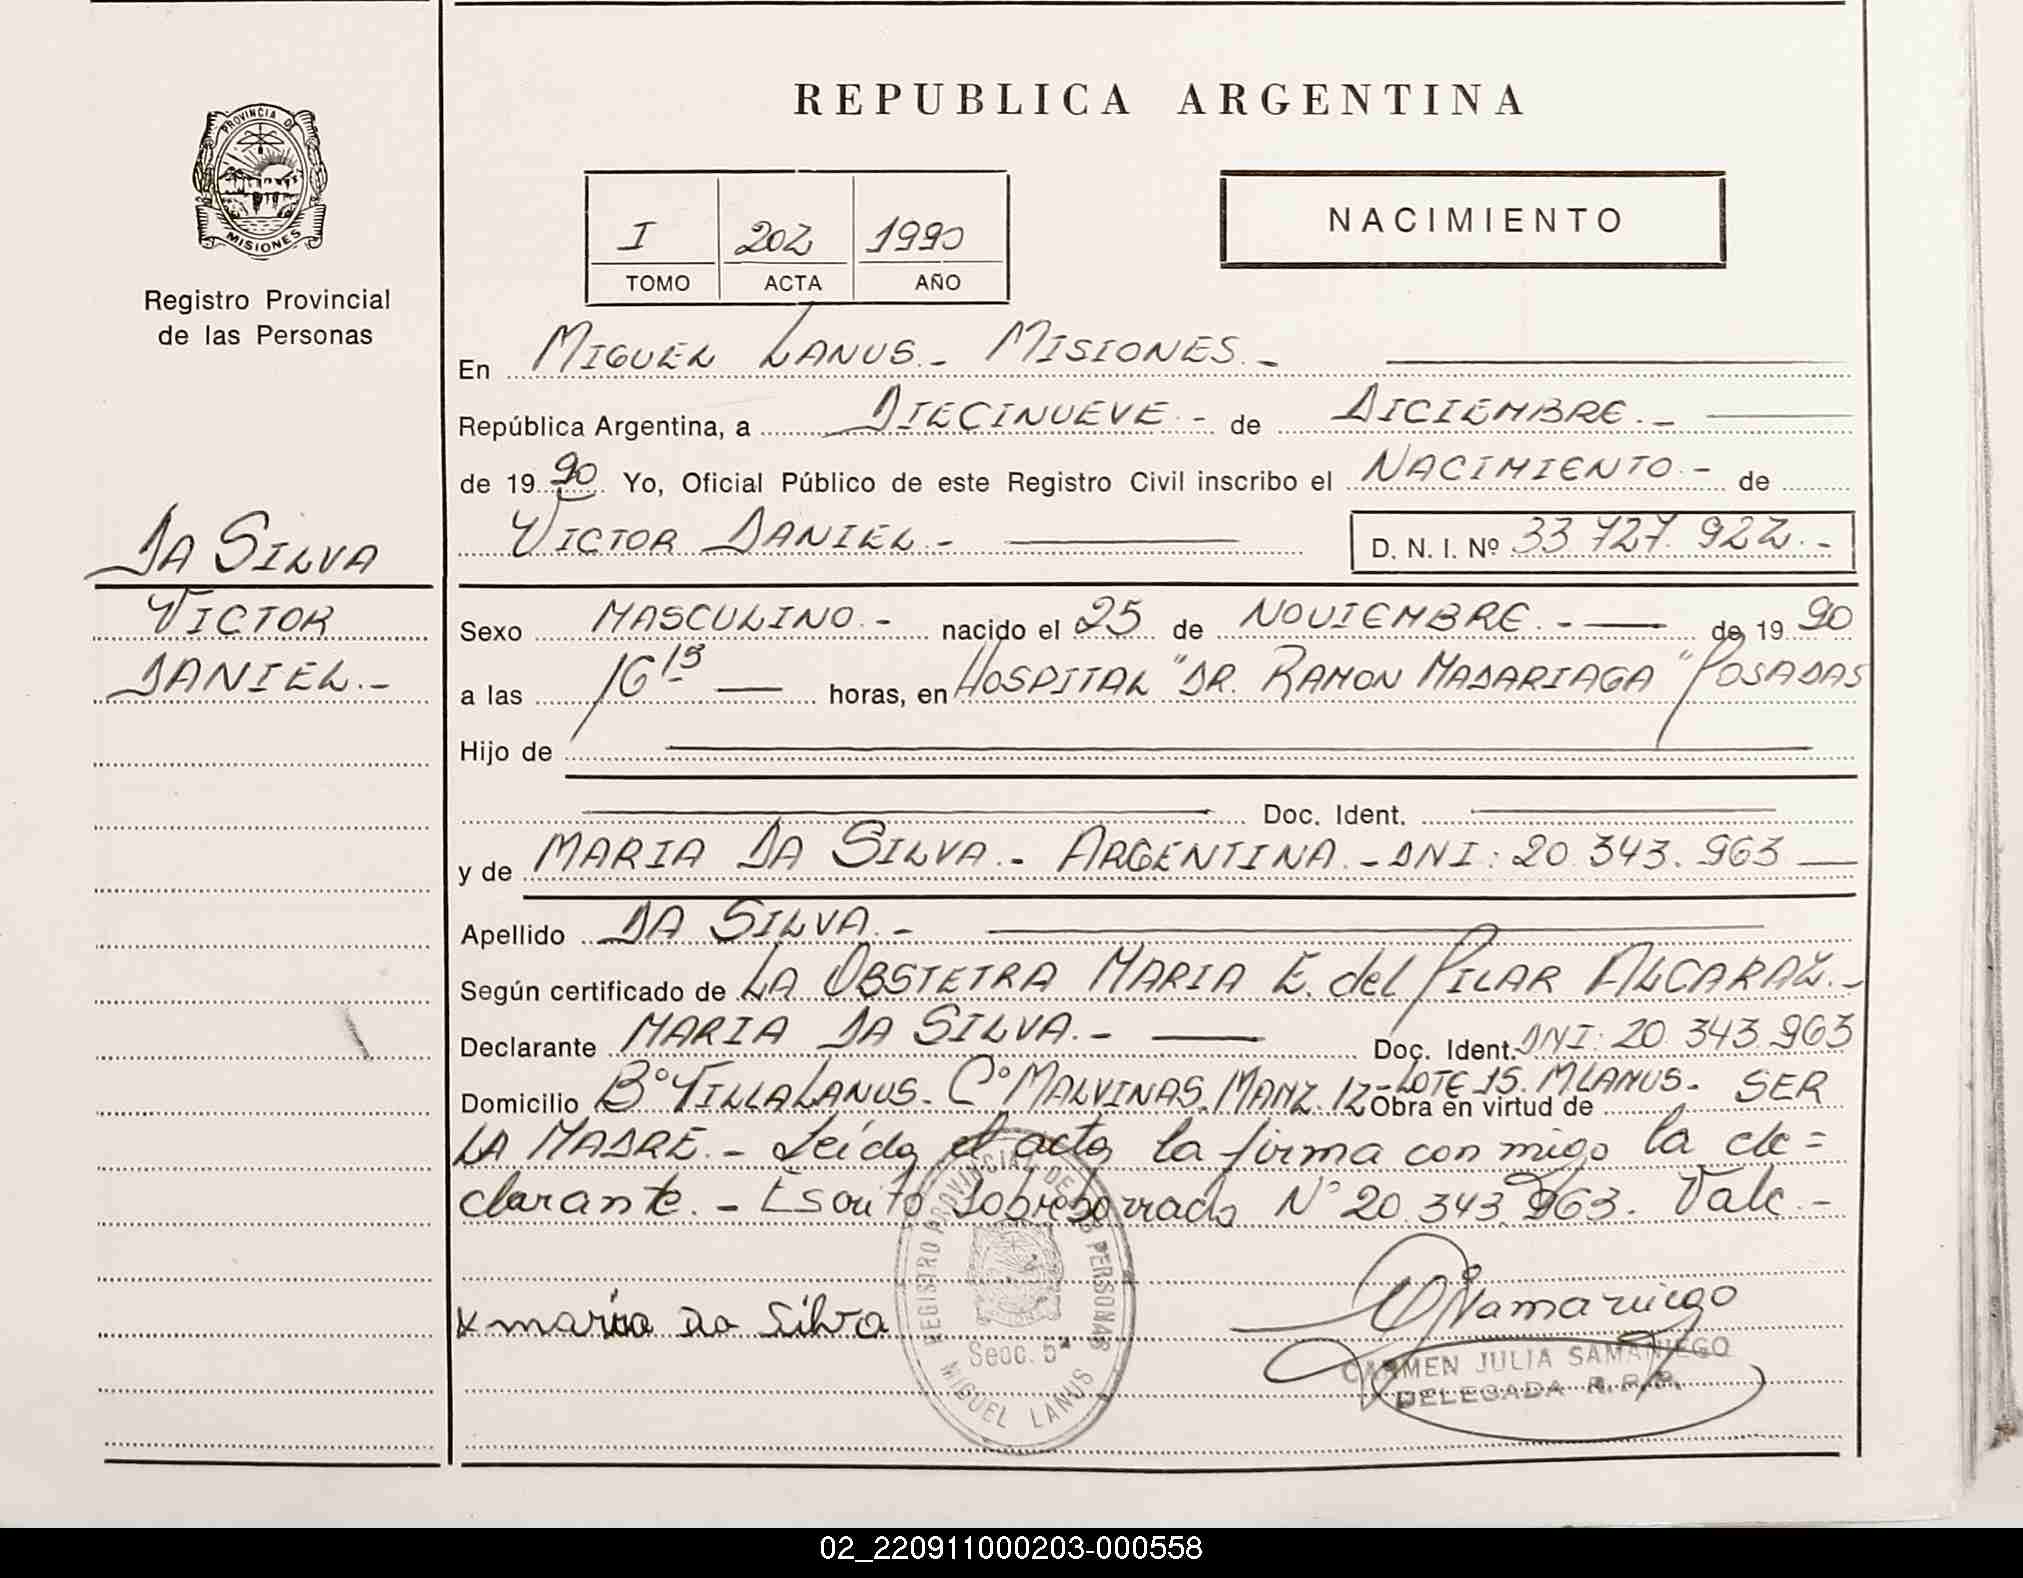 PROVINCIA DE
MISIONES
Registro Provincial
de las Personas
DA SILVA
VICTOR
DANIEL.-
REPUBLICA ARGENTINA
I 202 1990
TOMO ACTA AÑO
NACIMIENTO
En MIGUEL LANUS.- MISIONES.-
República Argentina, a DIECINUEVE.- de DICIEMBRE.-
de 1990 Yo, Oficial Público de este Registro Civil inscribo el NACIMIENTO.- de
VICTOR DANIEL.- D. N. I. Nº 33 727 922.-
Sexo MASCULINO.- nacido el 25 de NOVIEMBRE.- de 1990
a las 16 15 horas, en HOSPITAL "DR. RAMON MADARIAGA" POSADAS
Hijo de
Doc. Ident.
y de MARIA DA SILVA.- ARGENTINA.- DNI: 20.343.963
Apellido DA SILVA.-
Según certificado de LA OBSTETRA MARIA E. del PILAR ALCARAZ.-
Declarante MARIA DA SILVA.- Doc. Ident. DNI: 20.343.963
Domicilio Bº VILLA LANUS. Cº MALVINAS. MANZ. 12- LOTE 15. M. LANUS. Obra en virtud de SER
LA MADRE.- Leída el acta, la firma conmigo la de=
clarante.- Escrito sobreborrado Nº 20.343.963. Vale.-
x maria Da Silva
REGISTRO PROVINCIAL DE LAS PERSONAS
Secc. 5ª
MIGUEL LANUS
CARMEN JULIA SAMANIEGO
DELEGADA R.P.P.
02_220911000203-000558